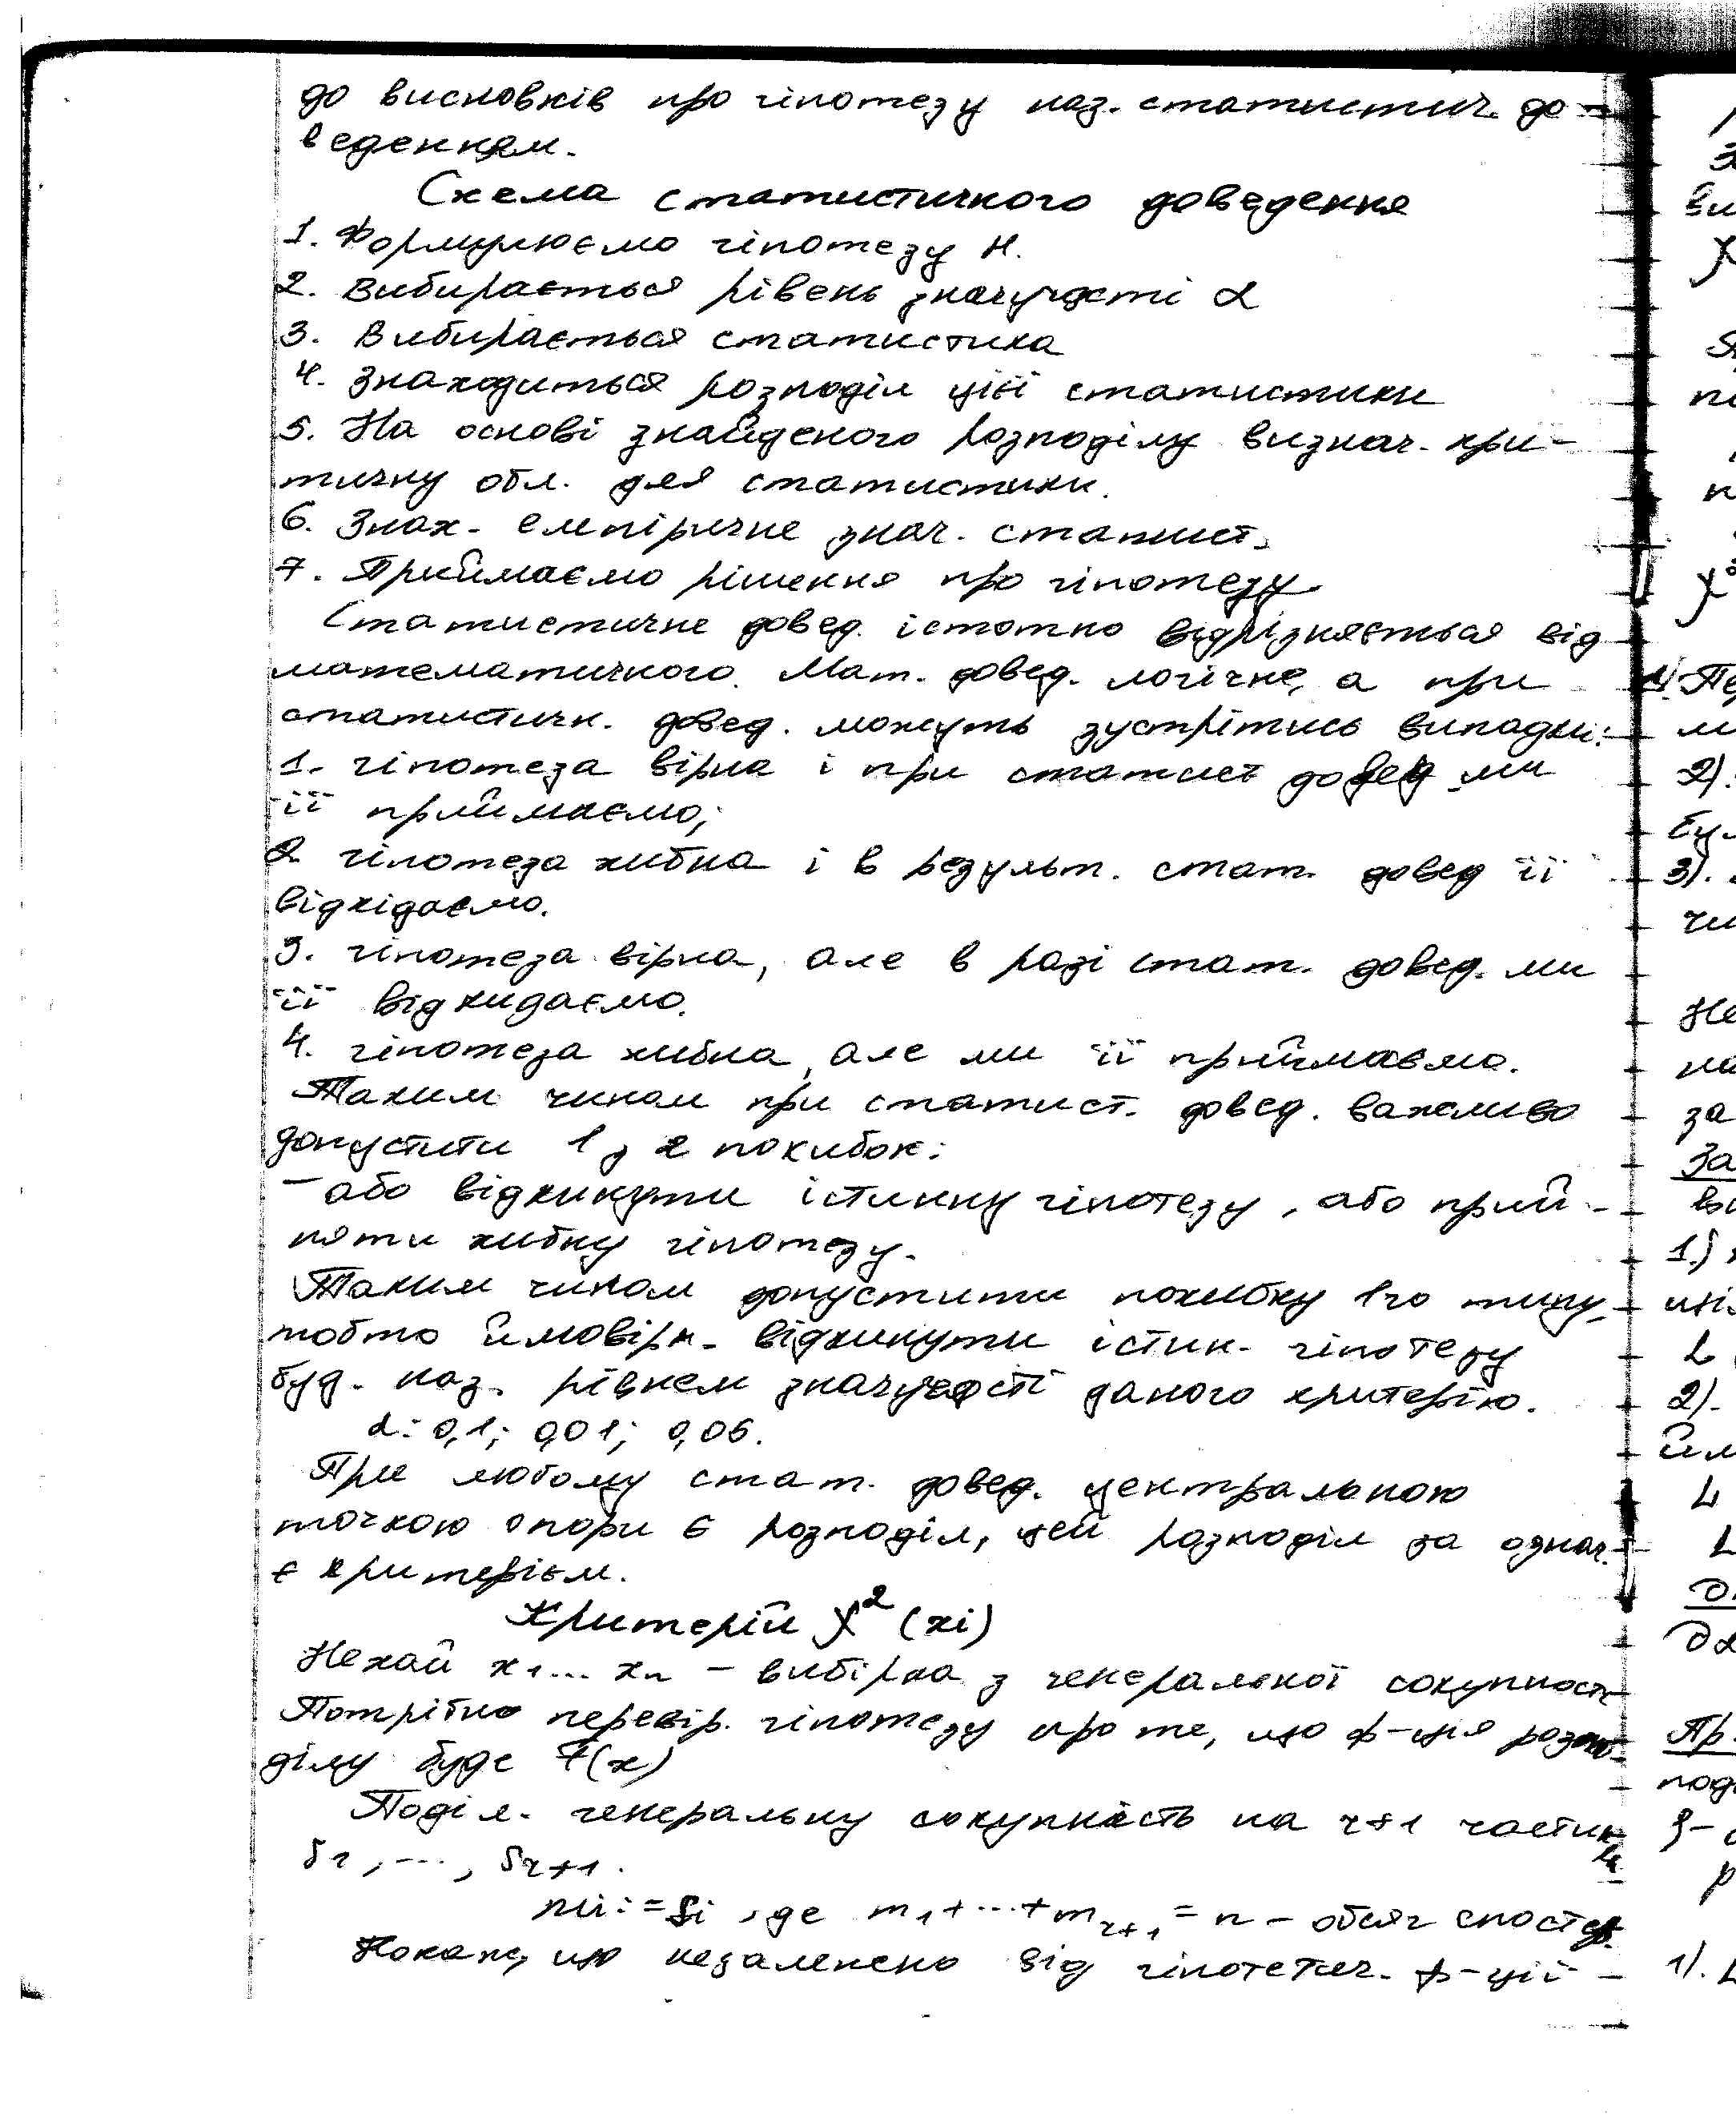 до висновків про гіпотезу наз. статистич. до-
веденням.
Схема статистичного доведення
1. Формулюємо гіпотезу H.
2. Вибирається рівень значущості α
3. Вибирається статистика
4. Знаходиться розподіл цієї статистики
5. На основі знайденого розподілу визнач. кри-
тичну обл. для статистики.
6. Знах. емпіричне знач. статист.
7. Приймаємо рішення про гіпотезу.
Статистичне довед. істотно відрізняється від
математичного. Мат. довед. логічне, а при
статистичн. довед. можуть зустрітись випадки:
1. гіпотеза вірна і при статист довед ми
її приймаємо;
2 гіпотеза хибна і в результ. стат. довед її
відкідаємо.
3. гіпотеза вірна, але в разі стат. довед. ми
її відкидаємо.
4. гіпотеза хибна, але ми її приймаємо.
Таким чином при статист. довед. важливо
допустити 1 з 2 похибок:
– або відкинути істинну гіпотезу, або прий-
няти хибну гіпотезу.
Таким чином допустити похибку 1го типу,
тобто ймовірн. відкинути істин. гіпотезу
буд. наз. рівнем значущості даного критерію.
α: 0,1; 0,01; 0,05.
При любому стат. довед. центральною
точкою опори є розподіл, цей розподіл за означ.
є критерієм.
Критерій χ² (хі)
Нехай x₁... xₙ – вибірка з генеральної сокупності
Потрібно перевір. гіпотезу про те, що ф-ція розпо-
ділу буде F(x)
Поділ. генеральну сокупність на r+1 частин
δ₁, ..., δr+1.
mi := δi, де m₁+...+mr+1 = n – обсяг спостер.
Покаж, що незалежно від гіпотетич. ф-ції –